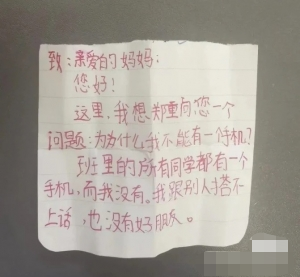 致：亲爱的妈妈：
您好！
这里，我想郑重向您一个
问题：为什么我不能有一个手机？
班里的所有同学都有一个
手机，而我没有。我跟别人搭不
上话，也没有好朋友。